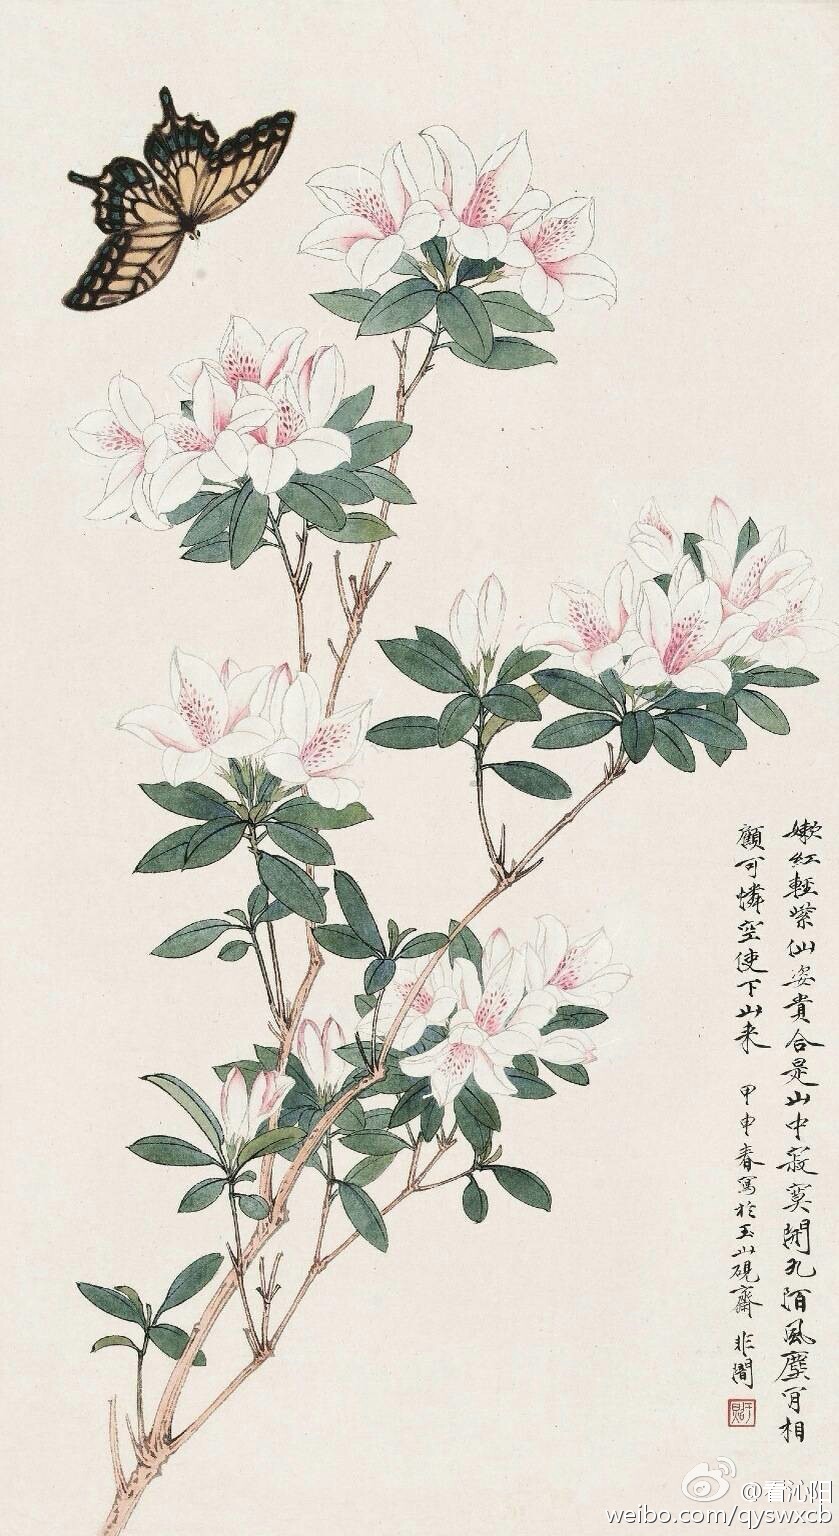 嫩红輕紫仙姿貴合是山中寂寞開九陌風塵肎相
顧可憐空使下山来 甲申春寫於玉山硯齋 非闇
@看沁阳
weibo.com/qyswxcb